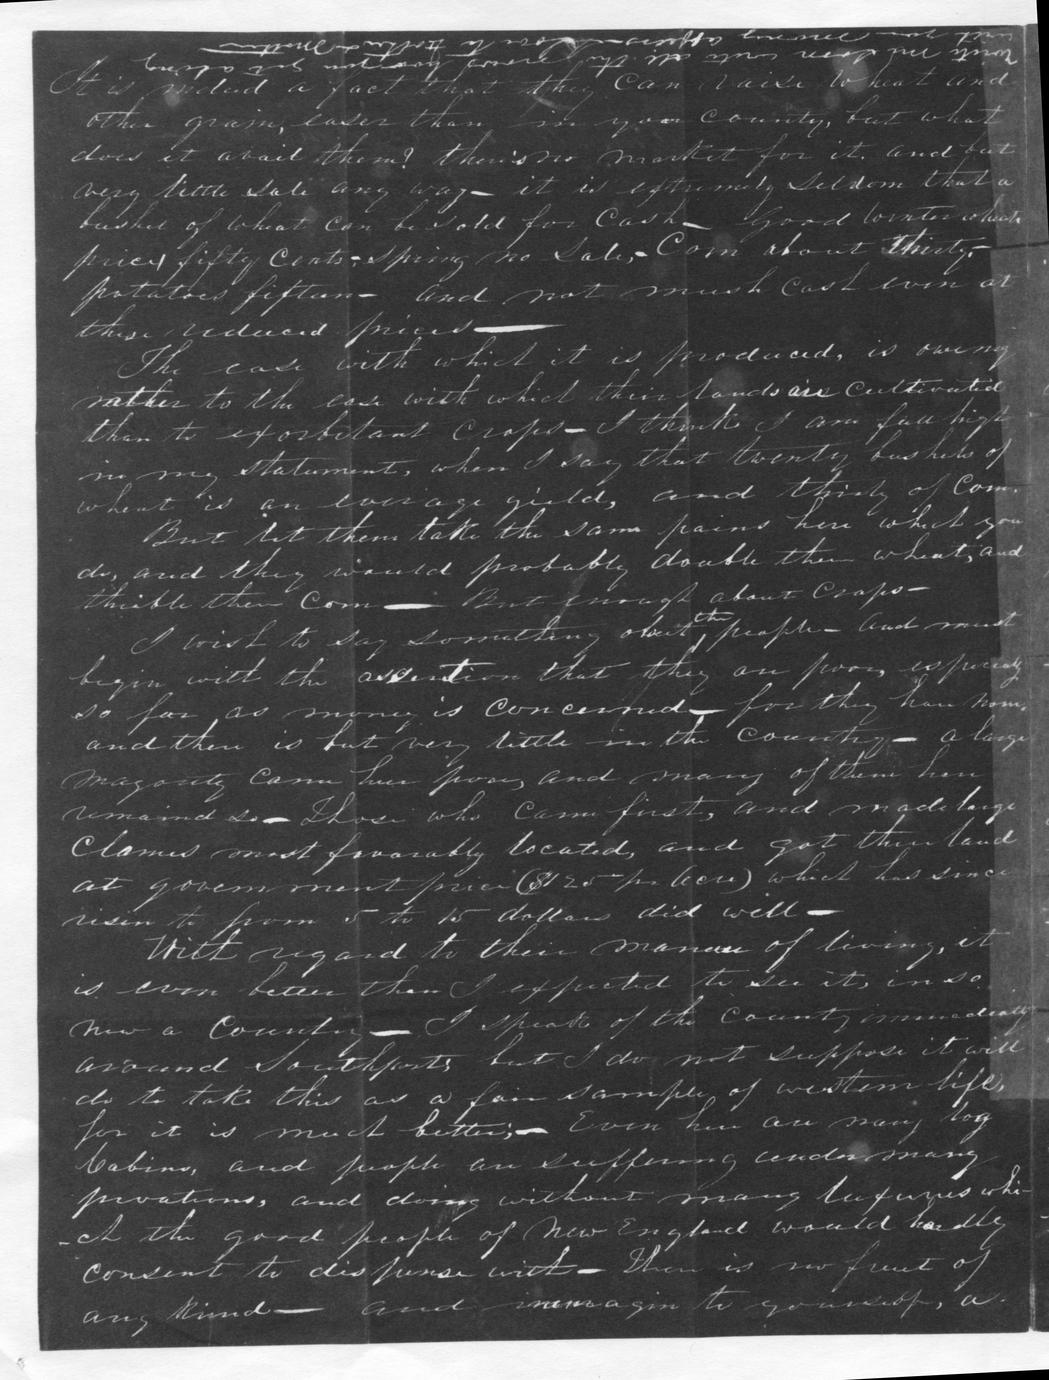 It is indeed a fact that they can raise wheat and
other grain, easer than in your county, but what
does it avail them? there's no market for it. and but
very little sale any way— it is extremely seldom that a
bushel of wheat can be sold for cash— Good Winter wheat,
price, fifty cents,- spring no sale,- Corn about thirty,-
potatoes fifteen— and not much cash even at
these reduced prices——
The ease with which it is produced, is owing
rather to the ease with which their lands are cultivated
than to exorbitant crops— I think I am full high
in my statement, when I say that twenty bushels of
wheat is an average yield, and thirty of Corn.
But let them take the same pains here which you
do, and they would probably double their wheat, and
thrible their corn—— But enough about crops—
I wish to say something about the people— and must
begin with the assertion that they are poor, especially
so far as money is concerned— for they have none,
and there is but very little in the country— a large
magority came here poor, and many of them here
remaind so— Those who came first, and made large
Clames most favorably located, and got their land
at government price ($125 pr acre) which has since
risen to from 5 to 15 dollars did well—
With regard to their manner of living, it
is even better than I expected to see it, in so
new a Country— I speak of the county immediately
around Southport; but I do not suppose it will
do to take this as a fair sample of western life,
for it is much better;— Even here are many log
Cabins, and people are suffering under many
privations, and doing without many luxuries whi-
-ch the good people of New England would hardly
consent to dispense with— There is no fruit of
any kind— and immagin to yourself, a